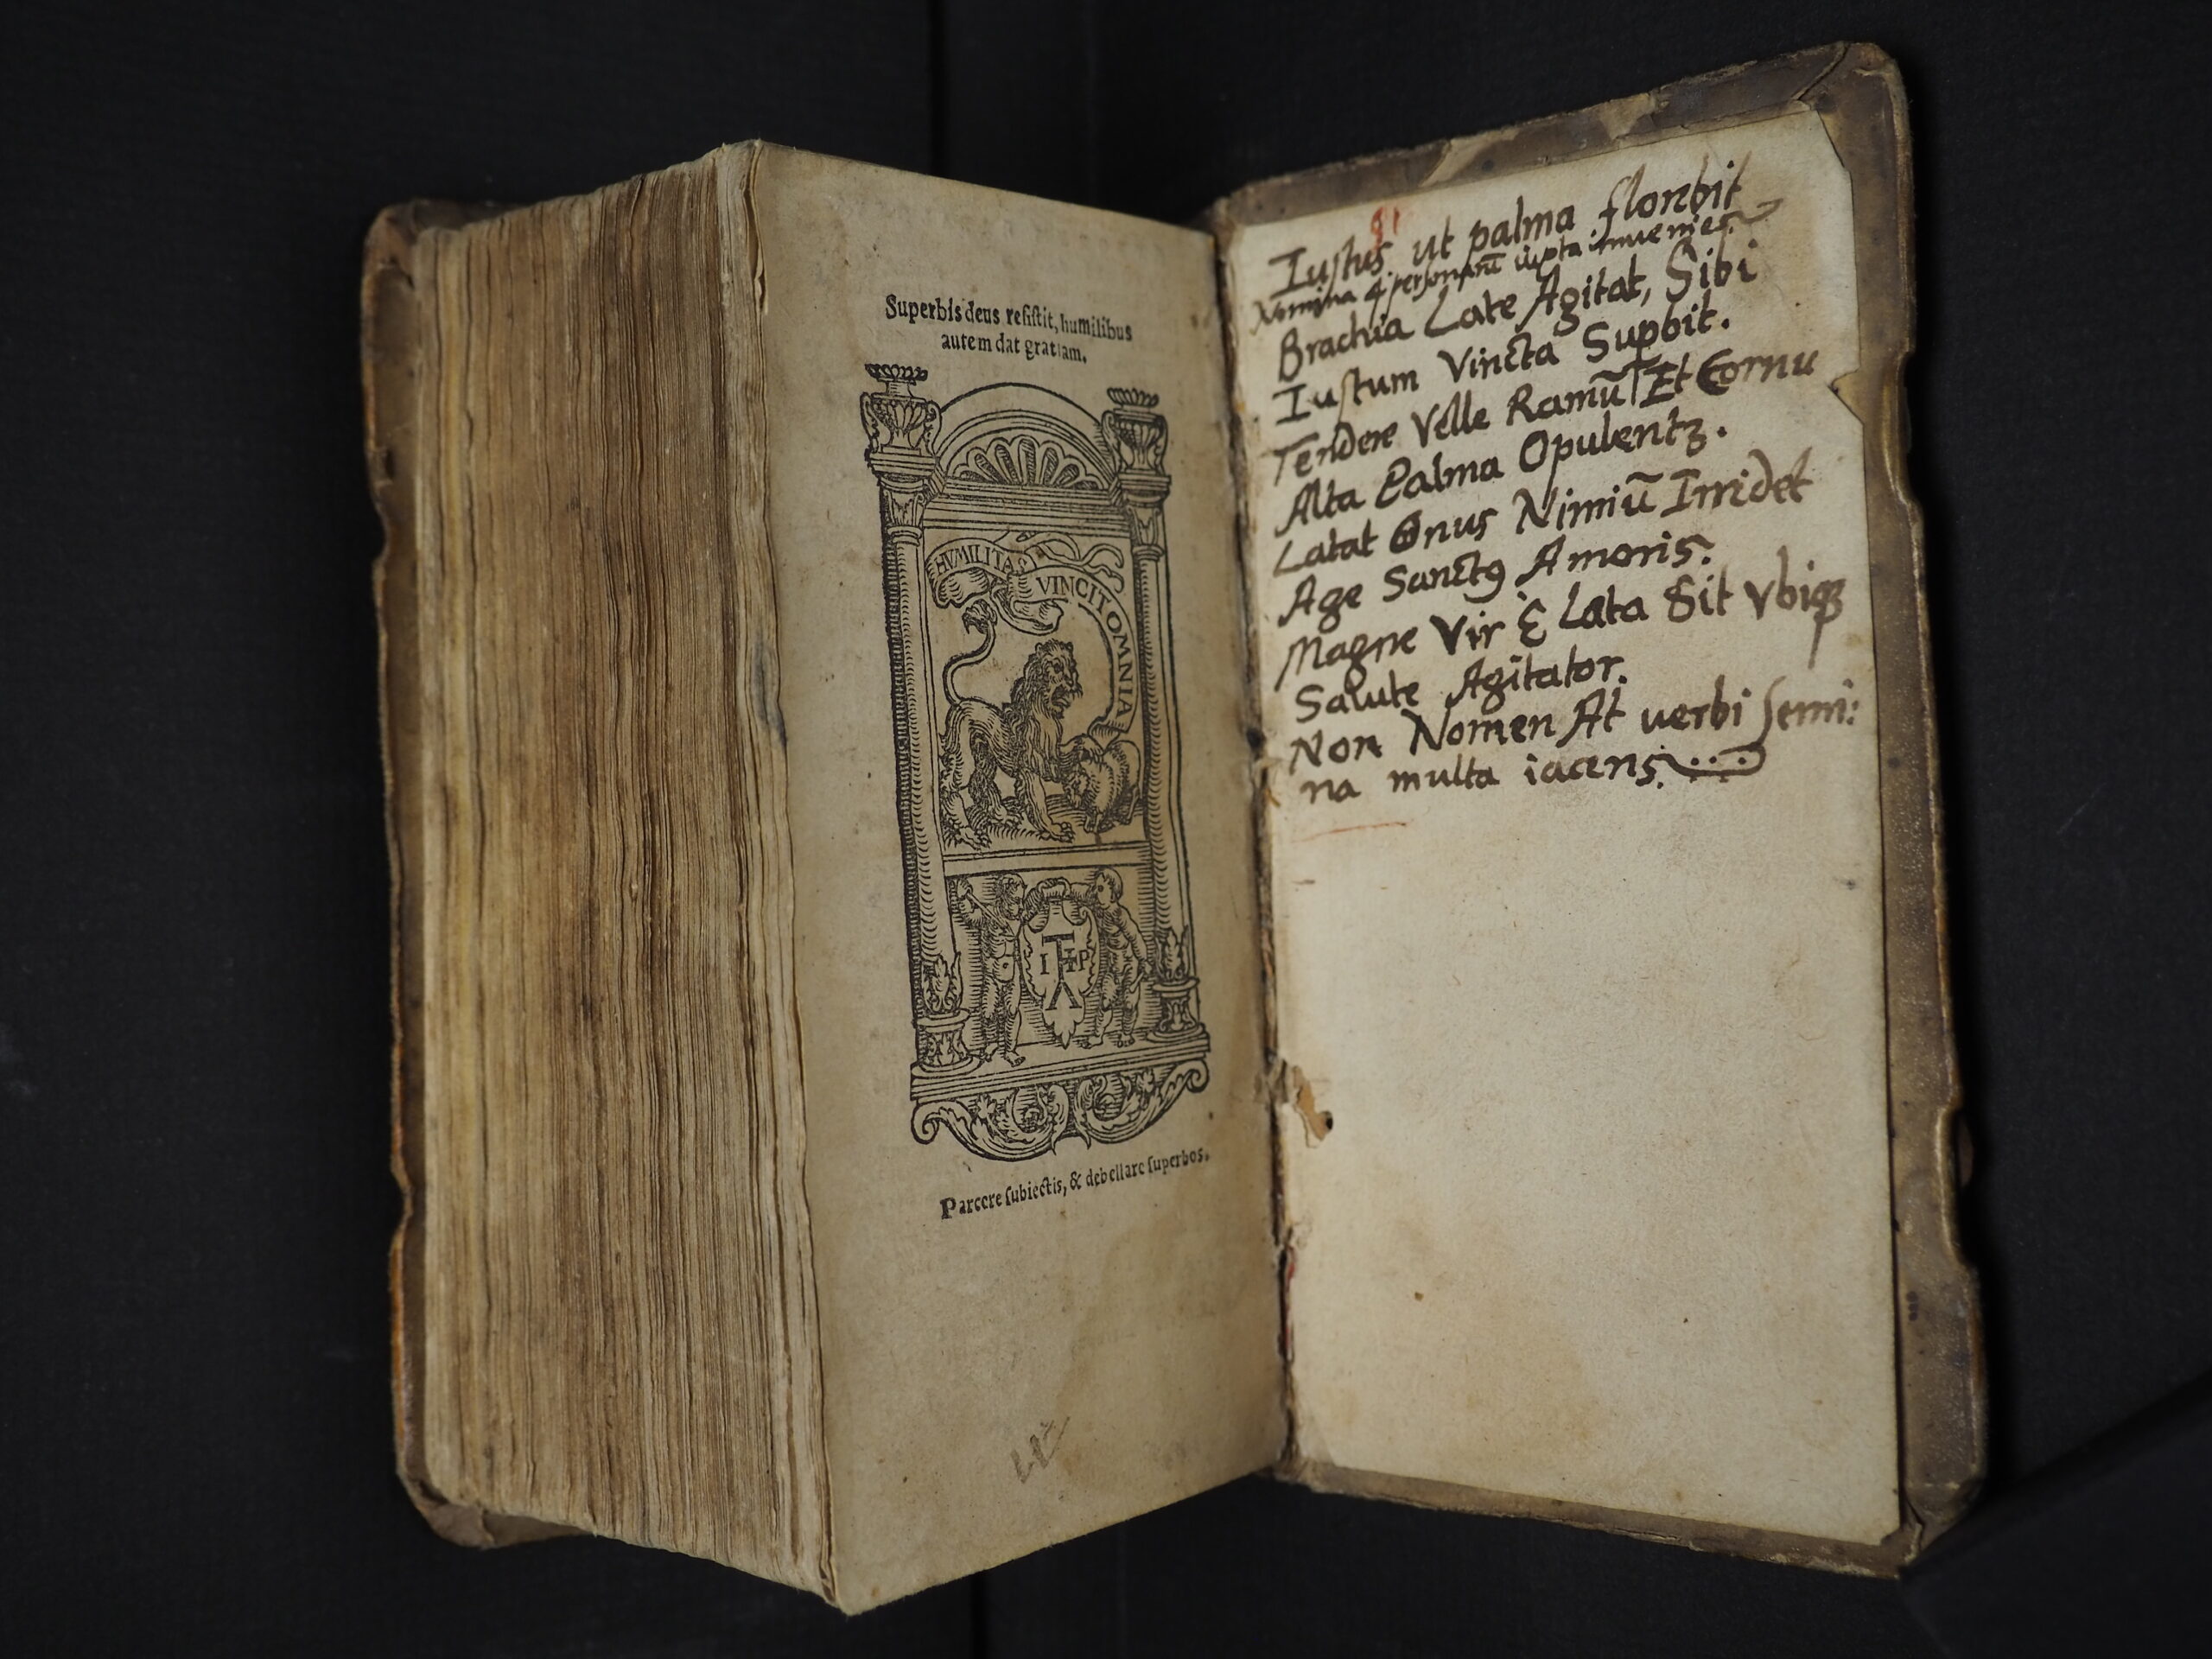 Superbis deus resistit, humilibus
autem dat gratiam.
HVMILITAS VINCIT OMNIA
I P
Parcere subiectis, & debellare superbos.
81
Iustus ut palma florebit
Nomina 4 personarū iuxta inuenies.
Brachia Late Agitat, Sibi
Iustum Vincta Supbit.
Tendere Velle Ramū Et Cornu
Alta Palma Opulentꝫ.
Latat Onus Nimiū Irridet
Age Sanctꝰ Amoris.
Magne Vir È Læta Sit Vbiqꝫ
Salute Agitator.
Non Nomen At uerbi semi:
na multa iacens.